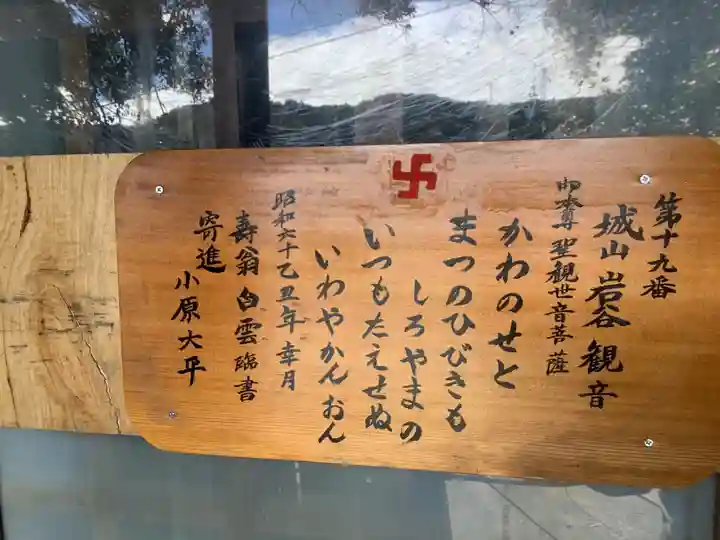 卐
第十九番
城山岩谷観音
御本尊聖観世音菩薩
かわのせと
まつのひびきも
しろやまの
いつもたえせぬ
いわやかんおん
昭和六十乙丑年幸月
寿翁白雲臨書
寄進小原大平